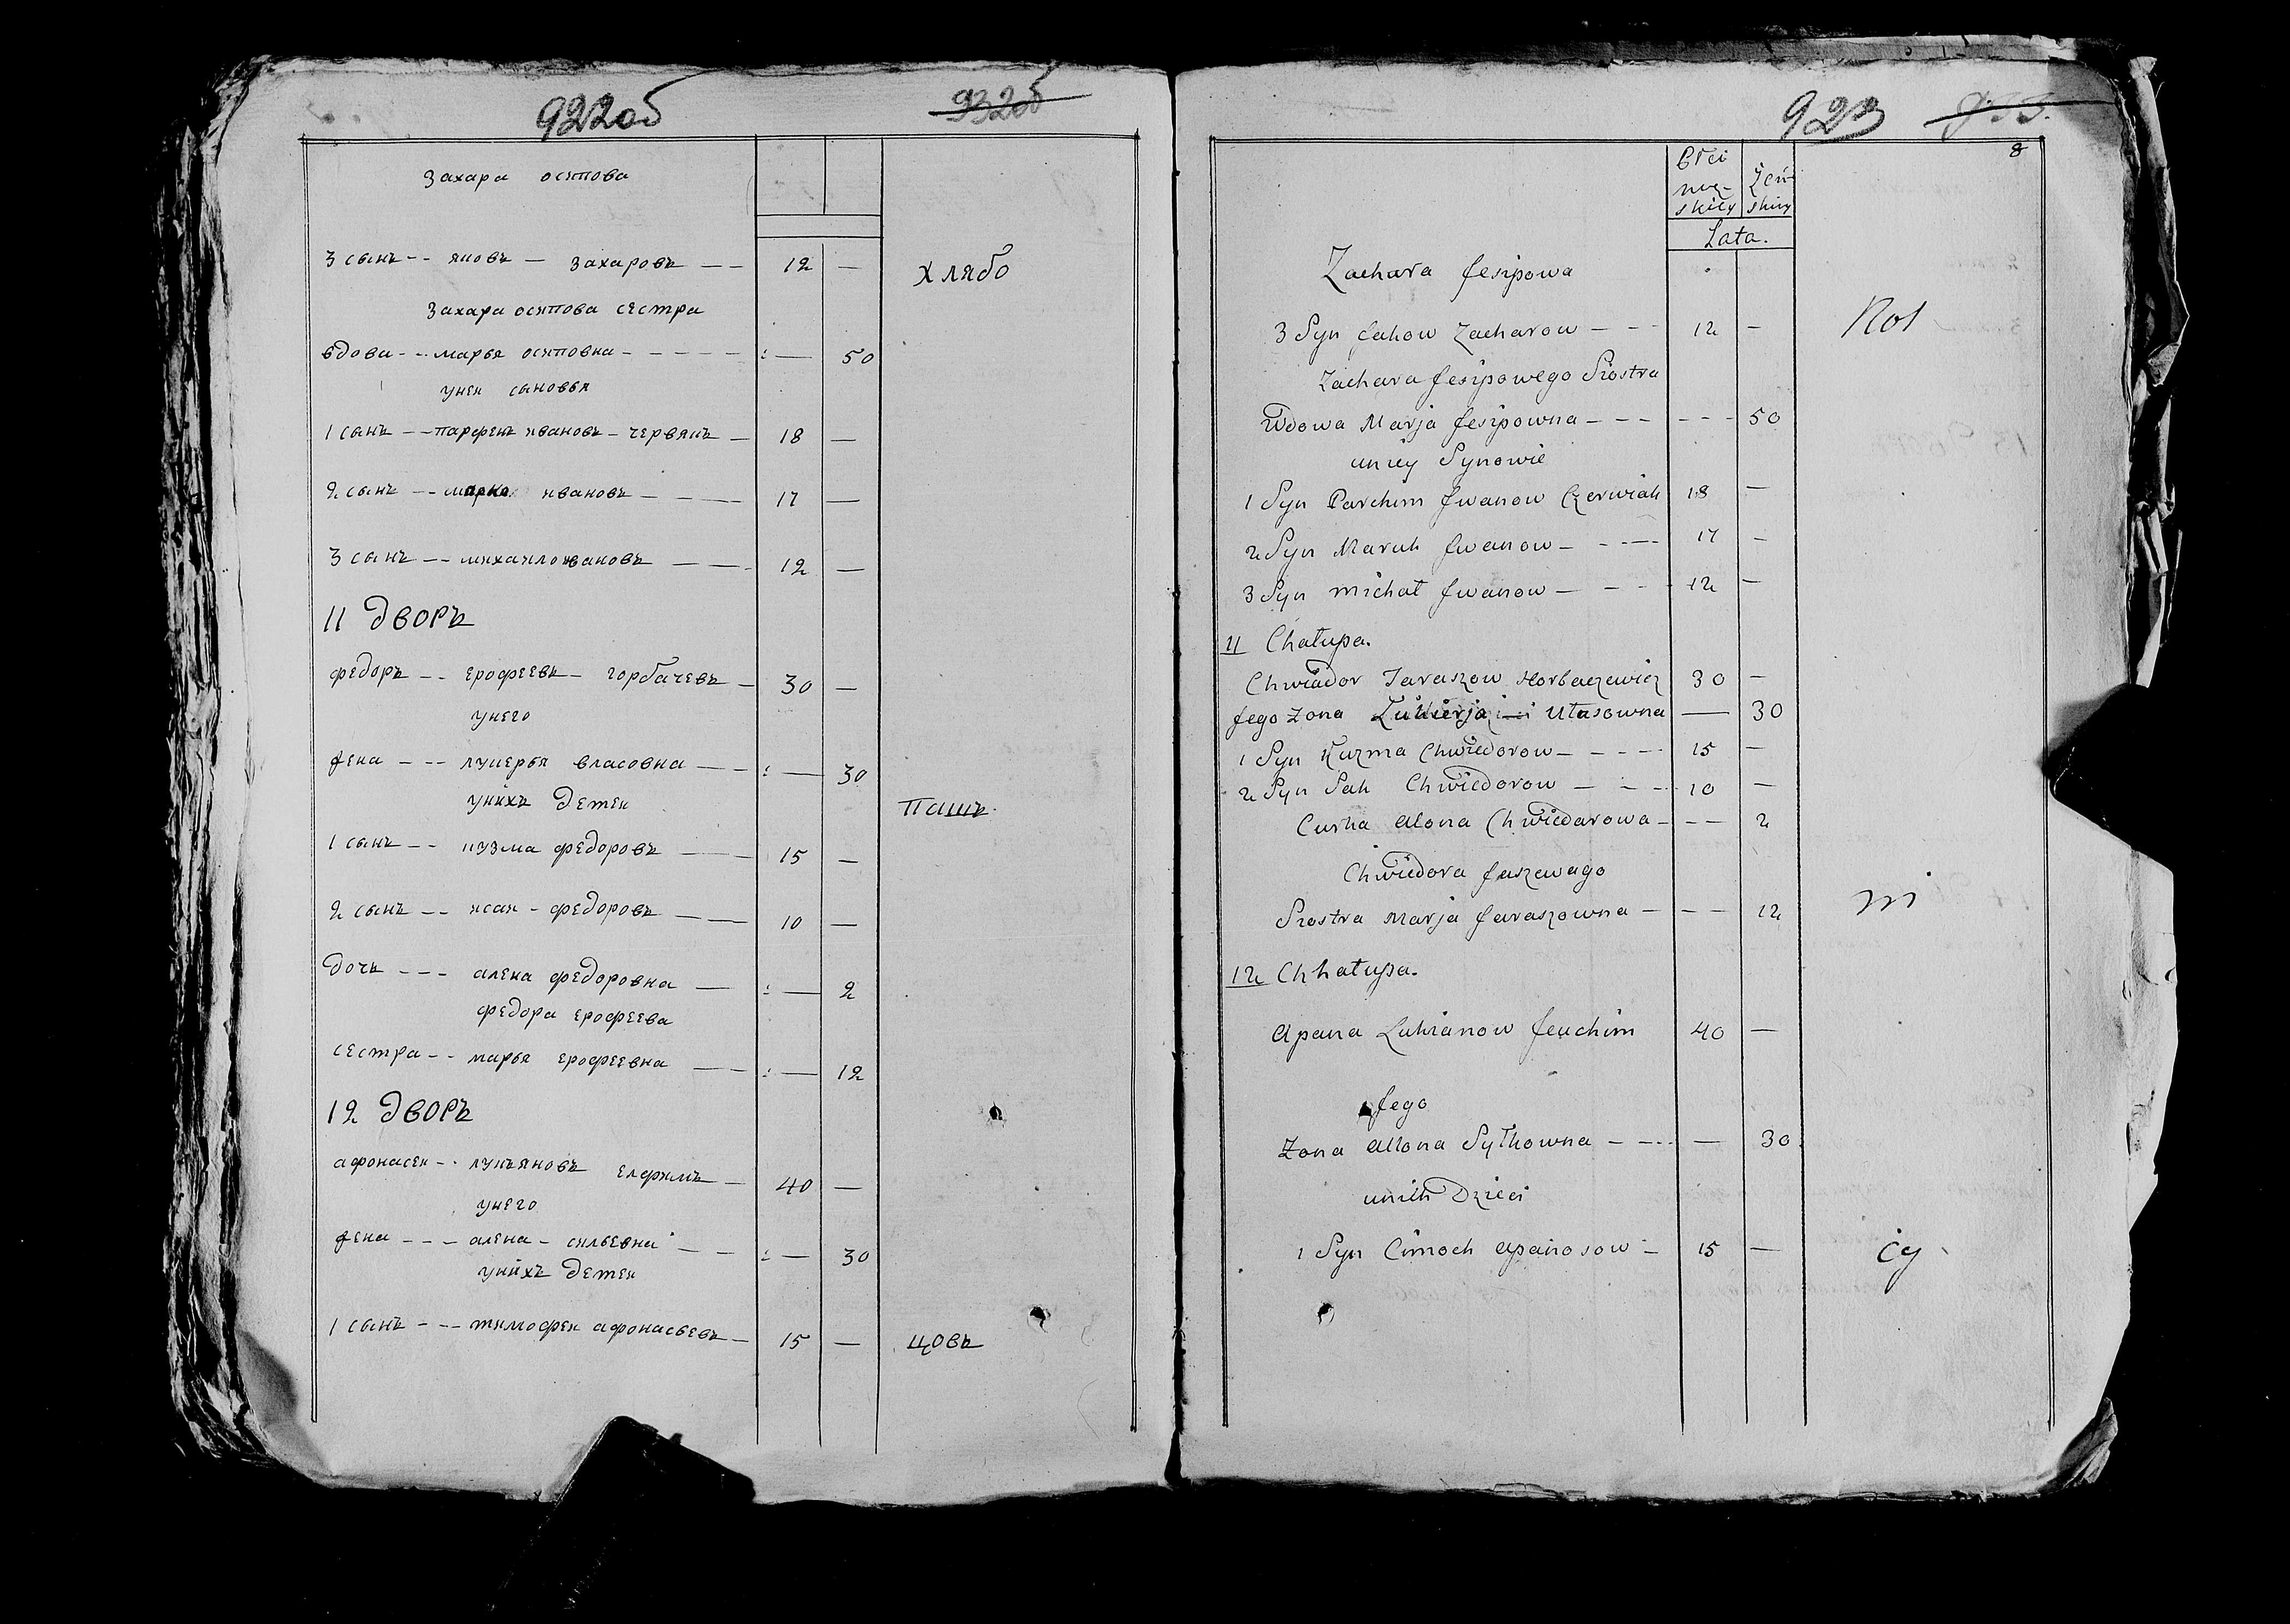 922об
932об
Захара осипова
3 сынъ -- яковъ — захаровъ — — 12 —
хлябо
Захара осипова сестра
вдова -- марья осиповна - - - - - : — 50
унея сыновья
1 сынъ -- парфенъ ивановъ - червякъ — 18 —
2 сынъ -- марко ивановъ - — — 17 —
3 сынъ -- михаило ивановъ — — 12 —
11 дворъ
федоръ -- ерофеевъ - горбачевъ — 30 —
унего
жена --- лукерья власовна — — : — 30
унихъ детеи
пашъ
1 сынъ -- кузма федоровъ — — 15 —
2 сынъ -- исаи - федоровъ — — 10 —
дочь --- алена федоровна — : — 2
федора ерофеева
сестра -- марья ерофеевна — — : — 12
12 дворъ
афонасеи -- лукьяновъ елфимъ — 40 —
унего
жена --- алена - сильевна - — : — 30
унихъ детеи
1 сынъ --- тимофеи афонасьевъ — 15 —
цовъ
923
8
Płci
męz-
skiey
Żeń-
skiey
Lata.
Zachara Jesipowa
3 Syn Jakow Zacharow — - - 12 —
Rol
Zachara Jesipowego Siostra
Wdowa Marja Jesipowna - - - - - - 50
uniey Synowie
1 Syn Parchim Jwanow Czerwiak 18 —
2 Syn Maruk Jwanow — - — 17 —
3 Syn Michał Jwanow — - - 12 —
11 Chałupa.
Chwiador Jaraszow Horbaczewicz 30 —
Jego Zona Łukierja Ułasowna — 30
1 Syn Kuzma Chwiedorow - - - - 15 —
2 Syn Sak Chwiedorow — - - 10 —
Curka Alona Chwiedarowa - - — 2
Chwiedora Jaszewago
Siostra Marja Jaraszowna — - — 12
ni
12 Chhałupa.
Apana Łukianow Jeuchim 40 —
Jego
Zona Allona Syłkowna — — - — 30
unich Dzieci
1 Syn Cimoch Apanosow — 15 —
cy